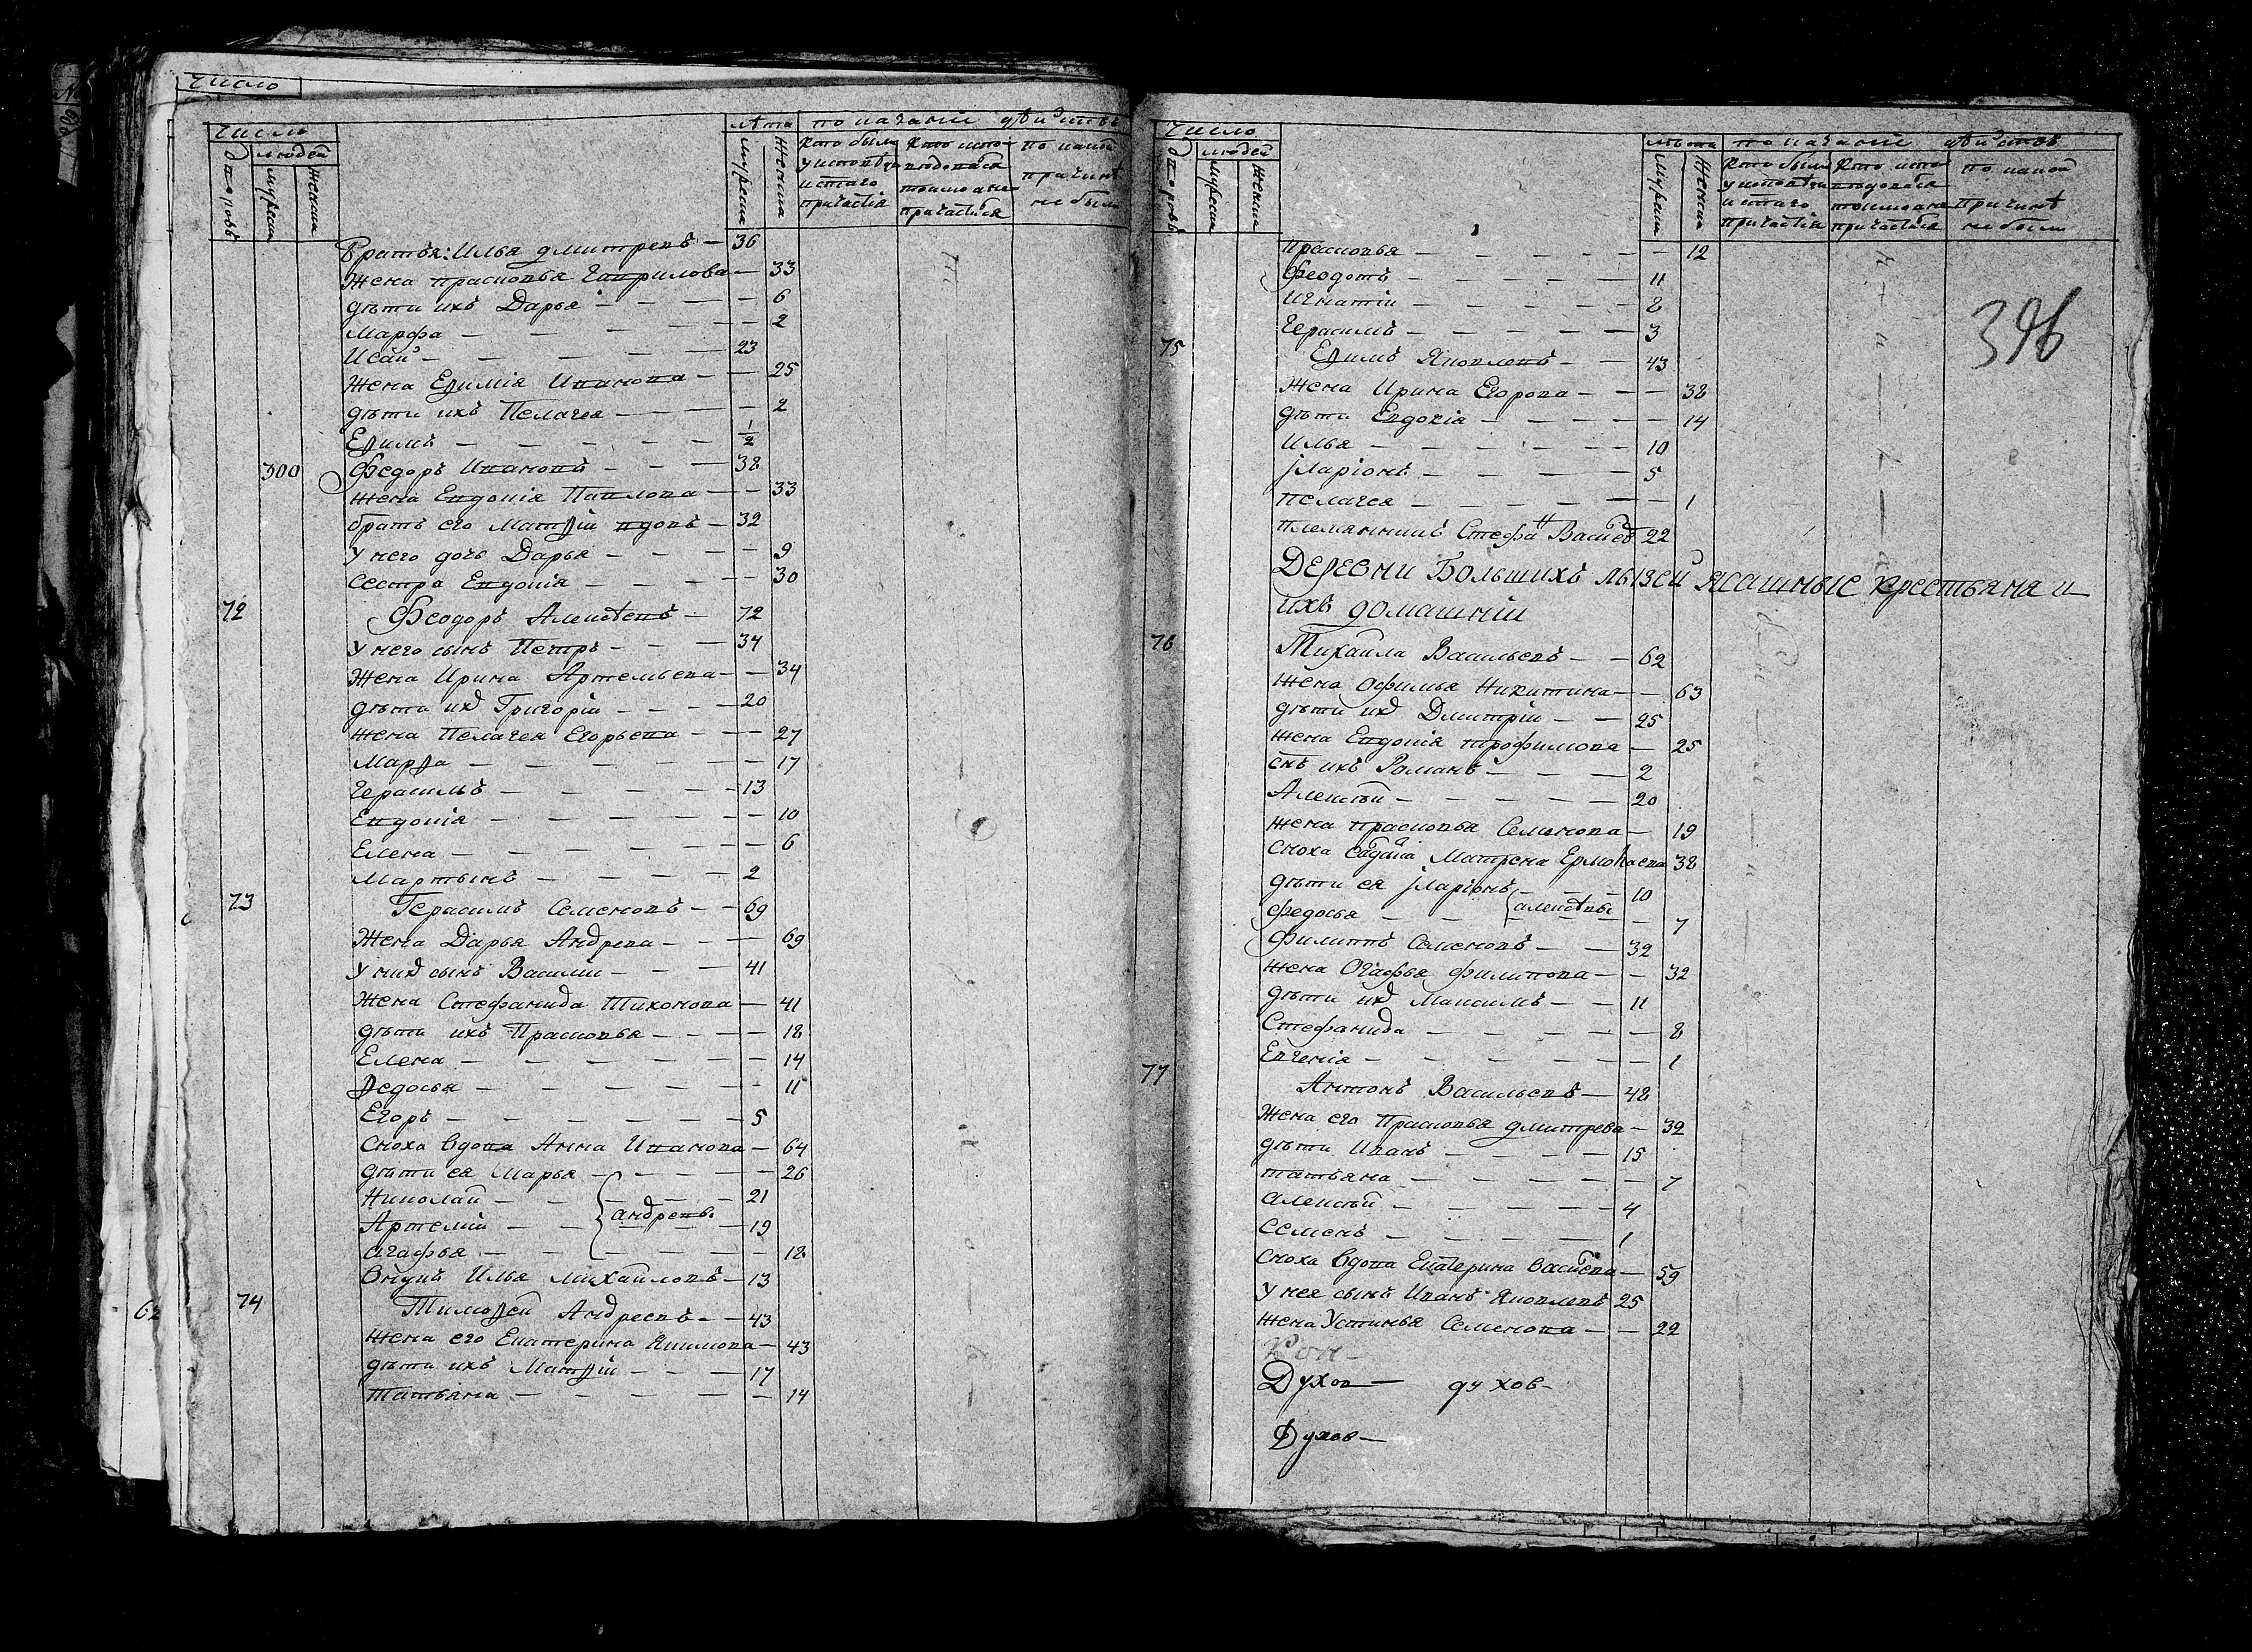 Число
Число
людей
дворовъ
мужеска
женска
лѣта
мужеска
женска
по
Кто были
у исповѣди
и стаго
причастія
Кто испо-
вѣдовался
токмо а не
причастился
по какой
причинѣ
не были
Братья: Илья дмитревъ — 36
Жена прасковья Гаврилова — 33
дѣти ихъ Дарья — 6
Марфа — 2
Исай — 23
Жена Еѳимія Иванова — 25
дѣти ихъ Пелагея — 2
Еѳимъ — 1/2
300 Федоръ Ивановъ — 38
жена Евдокія Павлова — 33
братъ его Матѳій вдовъ — 32
у него дочь Дарья — 9
сестра Евдокія — 30
72 Феодоръ Алексѣевъ — 72
у него сынъ Петръ — 34
Жена Ирина Артемьева — 34
дѣти их Григорій — 20
жена Пелагея Егорьева — 27
Марѳа — 17
Герасимъ — 13
Евдокія — 10
Елена — 6
Мартынъ — 2
73 Герасимъ Семеновъ — 69
Жена Дарья Андрева — 69
у них сынъ Василій — 41
Жена Стефанида Тихонова — 41
дѣти ихъ Прасковья — 18
Елена — 14
Ѳедосья — 11
Егоръ — 5
сноха вдова Анна Иванова — 64
дѣти ея Марья — 26
Николай — 21
Артемій — андревы — 19
агафья — 18
внукъ Илья михайловъ — 13
62 74 Тимоѳей Андреевъ — 43
жена его Екатерина Якимова — 43
дѣти ихъ Матѳій — 17
татьяна — 14
Число
людей
дворовъ
мужеска
женска
мужеска
женска
Кто были
у исповѣди
и стаго
причастія
Кто испо-
вѣдовался
токмо а не
причастился
по какой
причинѣ
не были
396
прасковья — 12
Феодотъ — 11
Игнатій — 8
Герасимъ — 3
75 Еѳимъ Яковлевъ — 43
жена Ирина Егорова — 38
дѣти Евдокія — 14
Илья — 10
Iларіонъ — 5
пелагея — 1
племянникъ Стефан Васиев 22
Деревни Большихъ лызей ясашные крестьяня и
ихъ домашніи
76 Михайла Васильевъ — 62
жена Офимья Никитина — 63
дѣти их Дмитрій — 25
жена Евдокія трофимова — 25
снъ ихъ Романъ — 2
Алексѣй — 20
жена прасковья Семенова — 19
сноха Матрена Ермолаева 38
дѣти ея Iларіонъ — 10
федосья — алексѣевы — 7
Филиппъ Семеновъ — 32
жена Огафья филипова — 32
дѣти их Максимъ — 11
Стефанида — 8
Евгенія — 1
77 Антонъ Васильевъ — 48
Жена его Прасковья дмитрева — 32
дѣти Иванъ — 15
татьяна — 7
алексѣй — 4
семенъ — 1
сноха вдова Екатерина васиева — 59
у нея сынъ Иванъ Яковлевъ 25
жена Устинья Семенова — 22
Духов — духов-
Духов —